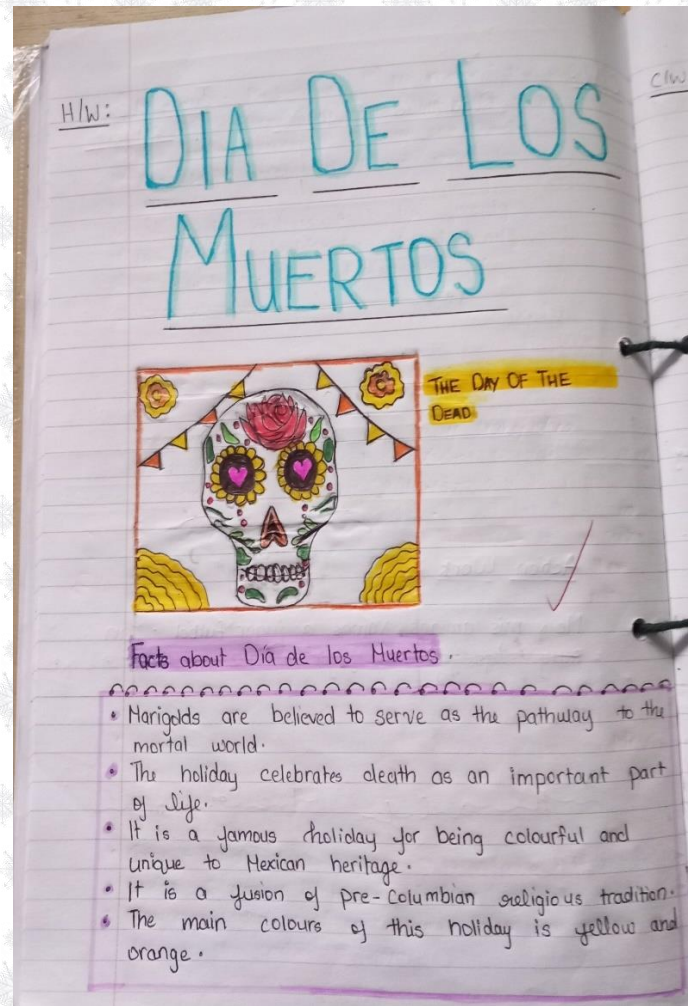 H/W:
C/W
DIA DE LOS
MUERTOS
THE DAY OF THE
DEAD
Facts about Día de los Muertos.
• Marigolds are believed to serve as the pathway to the
mortal world.
• The holiday celebrates death as an important part
of life.
• It is a famous holiday for being colourful and
unique to Mexican heritage.
• It is a fusion of pre-Columbian religious tradition.
• The main colours of this holiday is yellow and
orange.